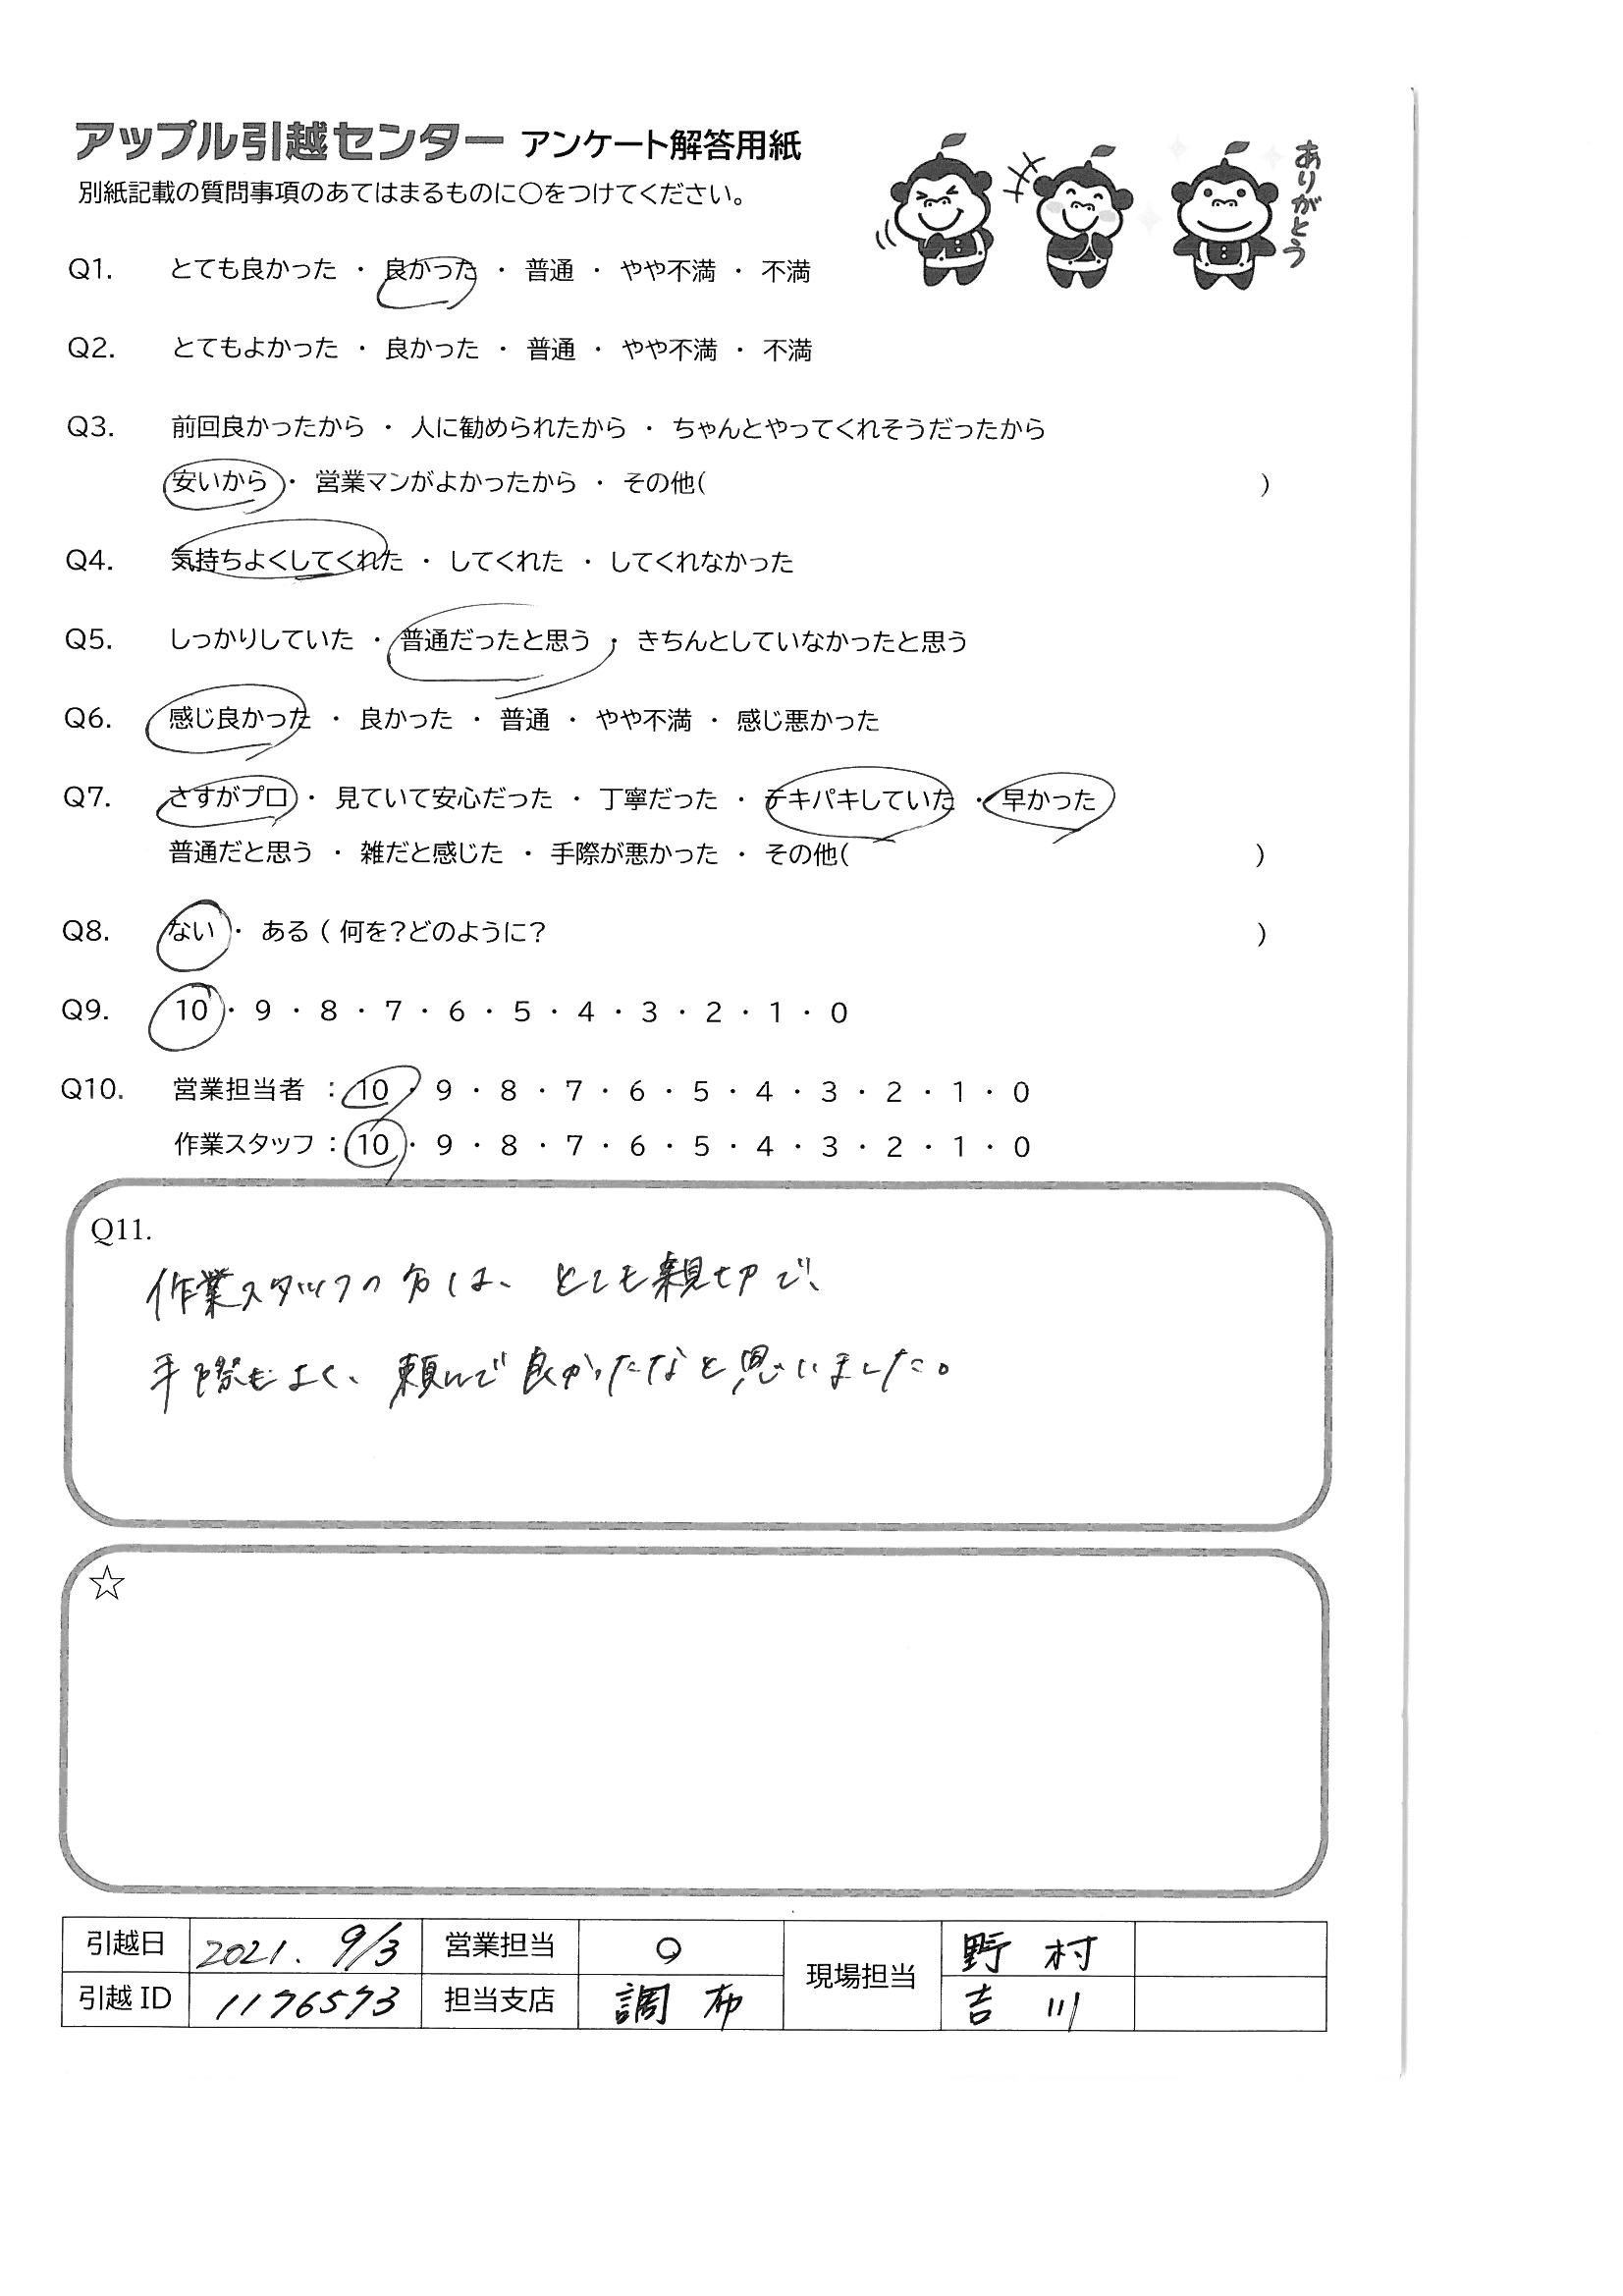 アップル引越センター アンケート解答用紙
別紙記載の質問事項のあてはまるものに○をつけてください。
ありがとう
Q1. とても良かった ・ 良かった ・ 普通 ・ やや不満 ・ 不満
Q2. とてもよかった ・ 良かった ・ 普通 ・ やや不満 ・ 不満
Q3. 前回良かったから ・ 人に勧められたから ・ ちゃんとやってくれそうだったから
安いから ・ 営業マンがよかったから ・ その他( )
Q4. 気持ちよくしてくれた ・ してくれた ・ してくれなかった
Q5. しっかりしていた ・ 普通だったと思う ・ きちんとしていなかったと思う
Q6. 感じ良かった ・ 良かった ・ 普通 ・ やや不満 ・ 感じ悪かった
Q7. さすがプロ ・ 見ていて安心だった ・ 丁寧だった ・ テキパキしていた ・ 早かった
普通だと思う ・ 雑だと感じた ・ 手際が悪かった ・ その他( )
Q8. ない ・ ある ( 何を?どのように? )
Q9. 10 ・ 9 ・ 8 ・ 7 ・ 6 ・ 5 ・ 4 ・ 3 ・ 2 ・ 1 ・ 0
Q10. 営業担当者 : 10 ・ 9 ・ 8 ・ 7 ・ 6 ・ 5 ・ 4 ・ 3 ・ 2 ・ 1 ・ 0
作業スタッフ : 10 ・ 9 ・ 8 ・ 7 ・ 6 ・ 5 ・ 4 ・ 3 ・ 2 ・ 1 ・ 0
Q11.
作業スタッフの方は、とても親切で、
手際もよく、頼んで良かったなと思いました。
☆
引越日 2021. 9/3 営業担当 Q 現場担当 野村
引越ID 1176573 担当支店 調布 吉川